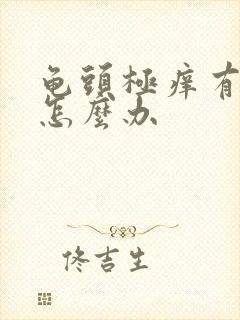 龟頭極癢有
怎麼办
佟吉生